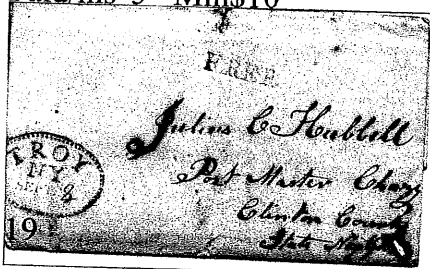 FREE
Julius C Hubbell
Post Master Chazy
Clinton County
State New York
TROY
NY
SEP
19